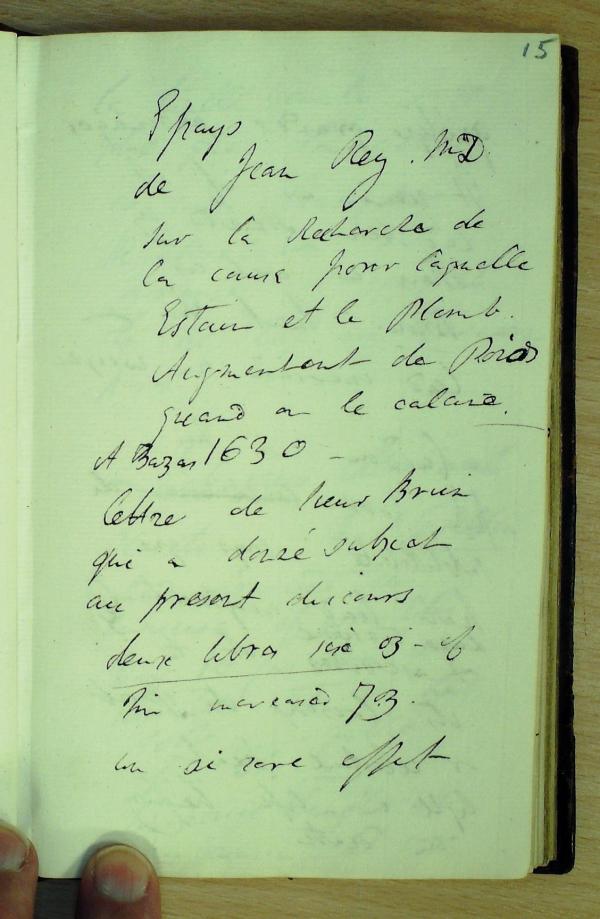 15
Essays
de Jean Rey. MD.
sur la Recherche de
la cause pour laquelle
Estain et le Plomb.
Augmentent de Poids
quand on le calcine.
A Bazas 1630 -
lettre de sieur Brun
qui a donné subject
au present discours
deux libres six oz - of
Tin increased 7 oz.
un si rare effet